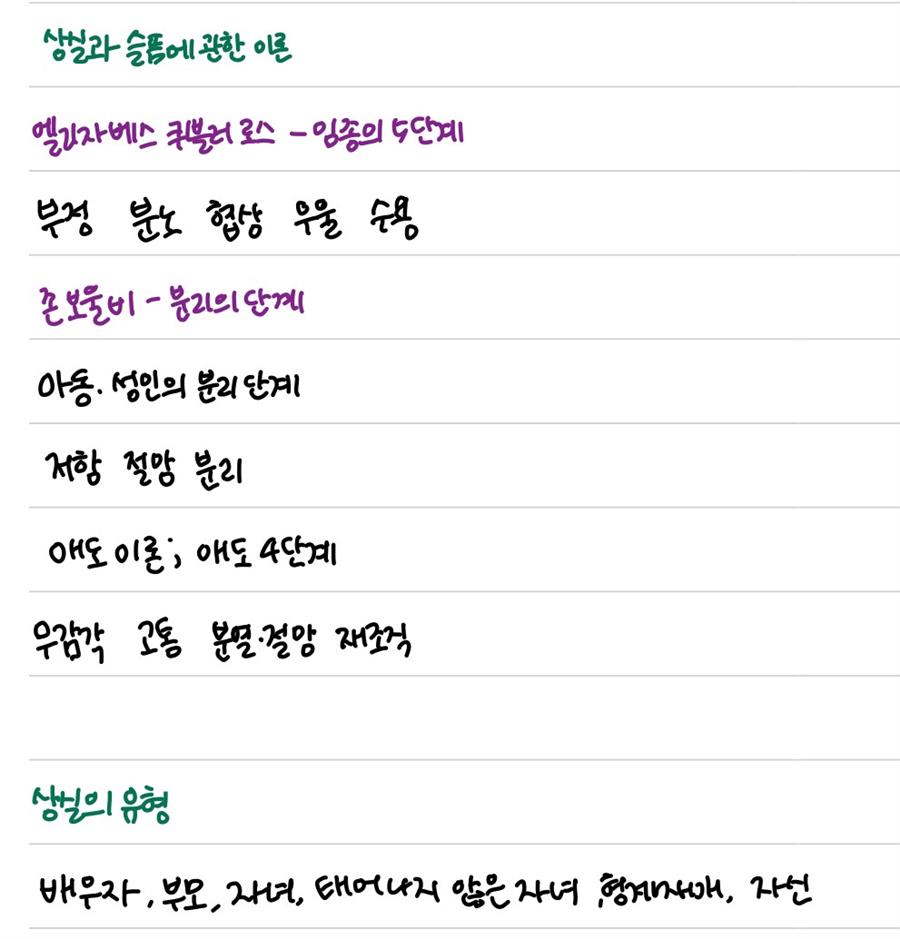 상실과 슬픔에 관한 이론
엘리자베스 퀴블러 로스 - 임종의 5단계
부정 분노 협상 우울 수용
존 보울비 - 분리의 단계
아동·성인의 분리 단계
저항 절망 분리
애도 이론; 애도 4단계
무감각 고통 분열·절망 재조직
상실의 유형
배우자, 부모, 자녀, 태어나지 않은 자녀, 형제자매, 자신